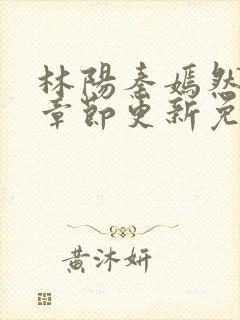 林陽秦嫣然
章節更新免
黃沐妍